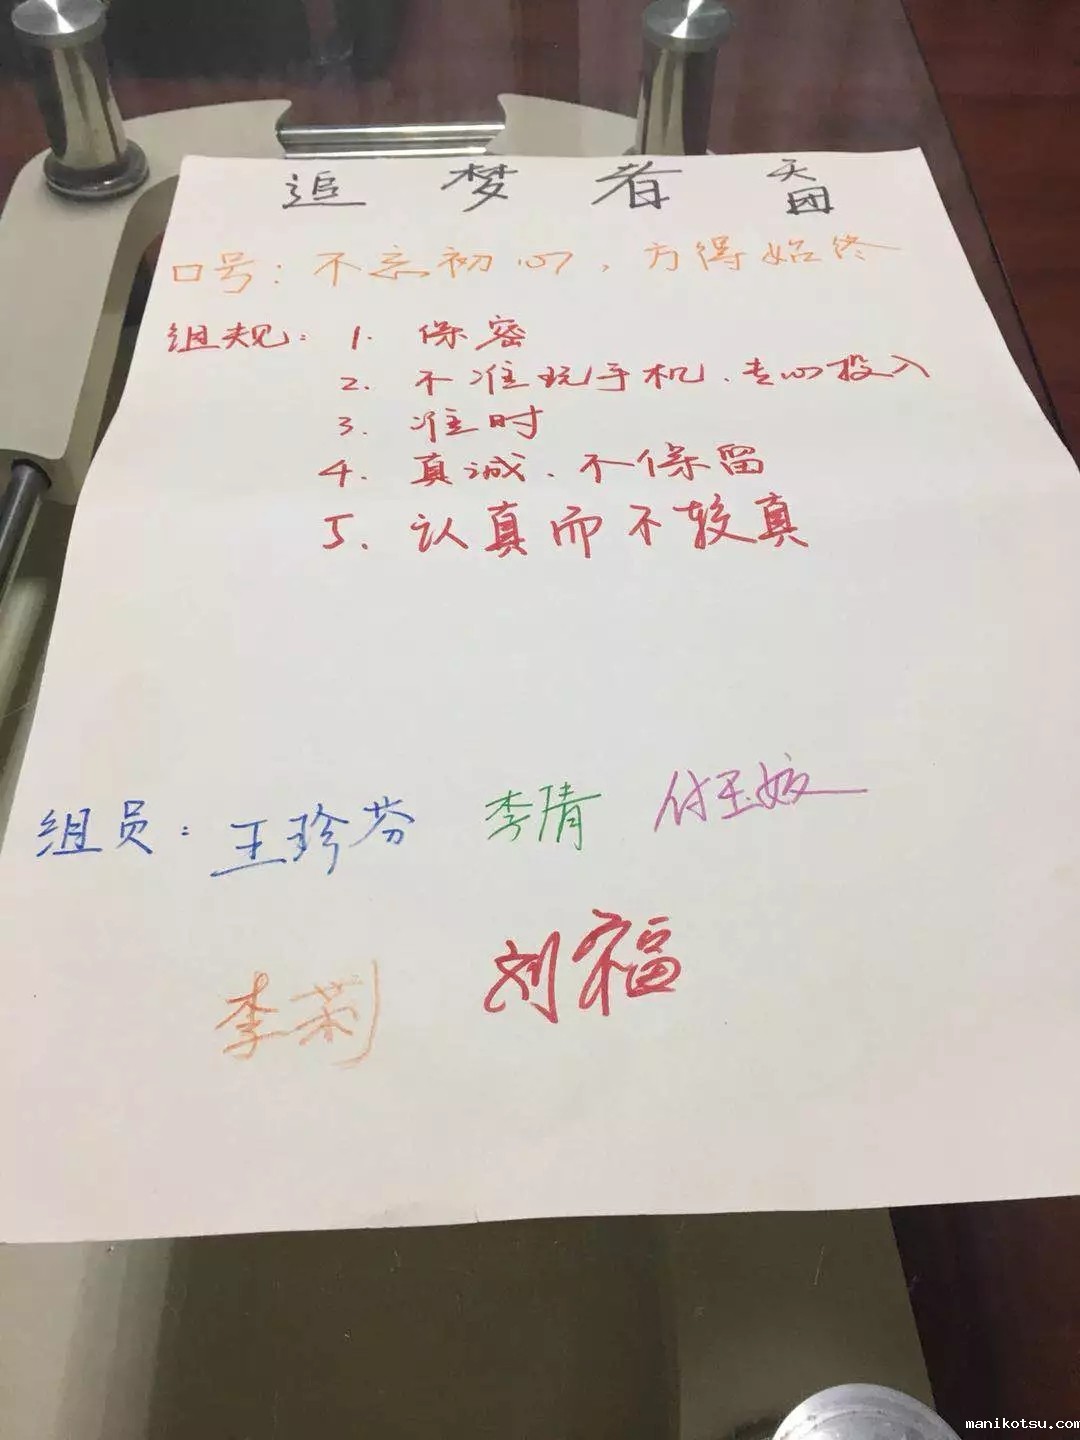 追梦者天团
口号：不忘初心，方得始终
组规：1. 保密
2. 不准玩手机、专心投入
3. 准时
4. 真诚、不保留
5. 认真而不较真
组员：王珍芬 李倩 付玉姣
李莉 刘福
manikotsu.com